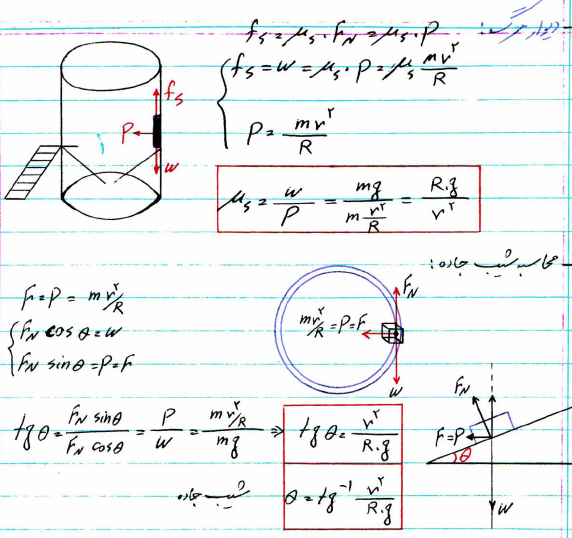 دیوار مرگ:
fs = μs · FN = μs · P
fs = w = μs · P = μs mv²/R
P = mv²/R
fs
P
w
μs = w/P = mg/(m v²/R) = R.g/v²
محاسبه شیب جاده:
F = P = mv²/R
FN cos θ = w
FN sin θ = P = F
FN
mv²/R = P = F
w
tg θ = FN sinθ/FN cosθ = P/w = (mv²/R)/mg ⇒ tg θ = v²/R.g
شیب جاده θ = tg⁻¹ v²/R.g
FN
F = P
θ
w